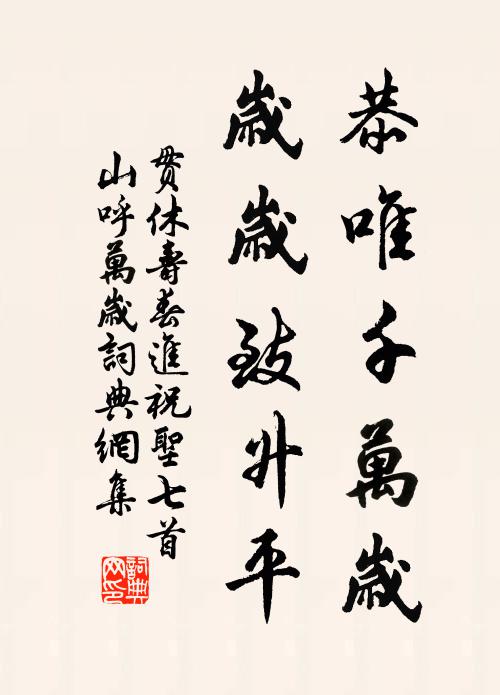 恭唯千萬歲
歲歲致升平
貫休壽春進祝聖七首
山呼萬歲詞典網集
詞典
网印